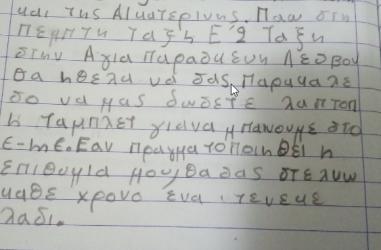 και της Αικατερινης. Παω στη
πεμπτη ταξη Ε'2 Ταξη
στην Αγια Παρασκευη Λεσβου
θα ηθελα να σας Παρακαλε
σο να μας δωσετε λαπτοπ
η ταμπλετ γιανα μπαινουμε στο
e-me. Εαν πραγματοποιηθει η
επιθυμια μου, θα σας στελνω
καθε χρονο ένα τενεκε
λαδι.